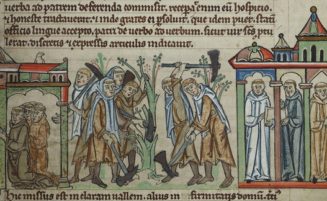 uerba ad patrem deferenda commisit. recepta enim cū hospicio.
⁊ honeste tractauerit. ⁊ inde grates ei ꝑsoluit. que idem puer. statī
officio lingue accepto, patri de uerbo ad uerbum. sicut uir scs
lerat. discretis ⁊ expressis articulis indicauit.
Hic missus est in claram uallem. alius in firmitatis domū.